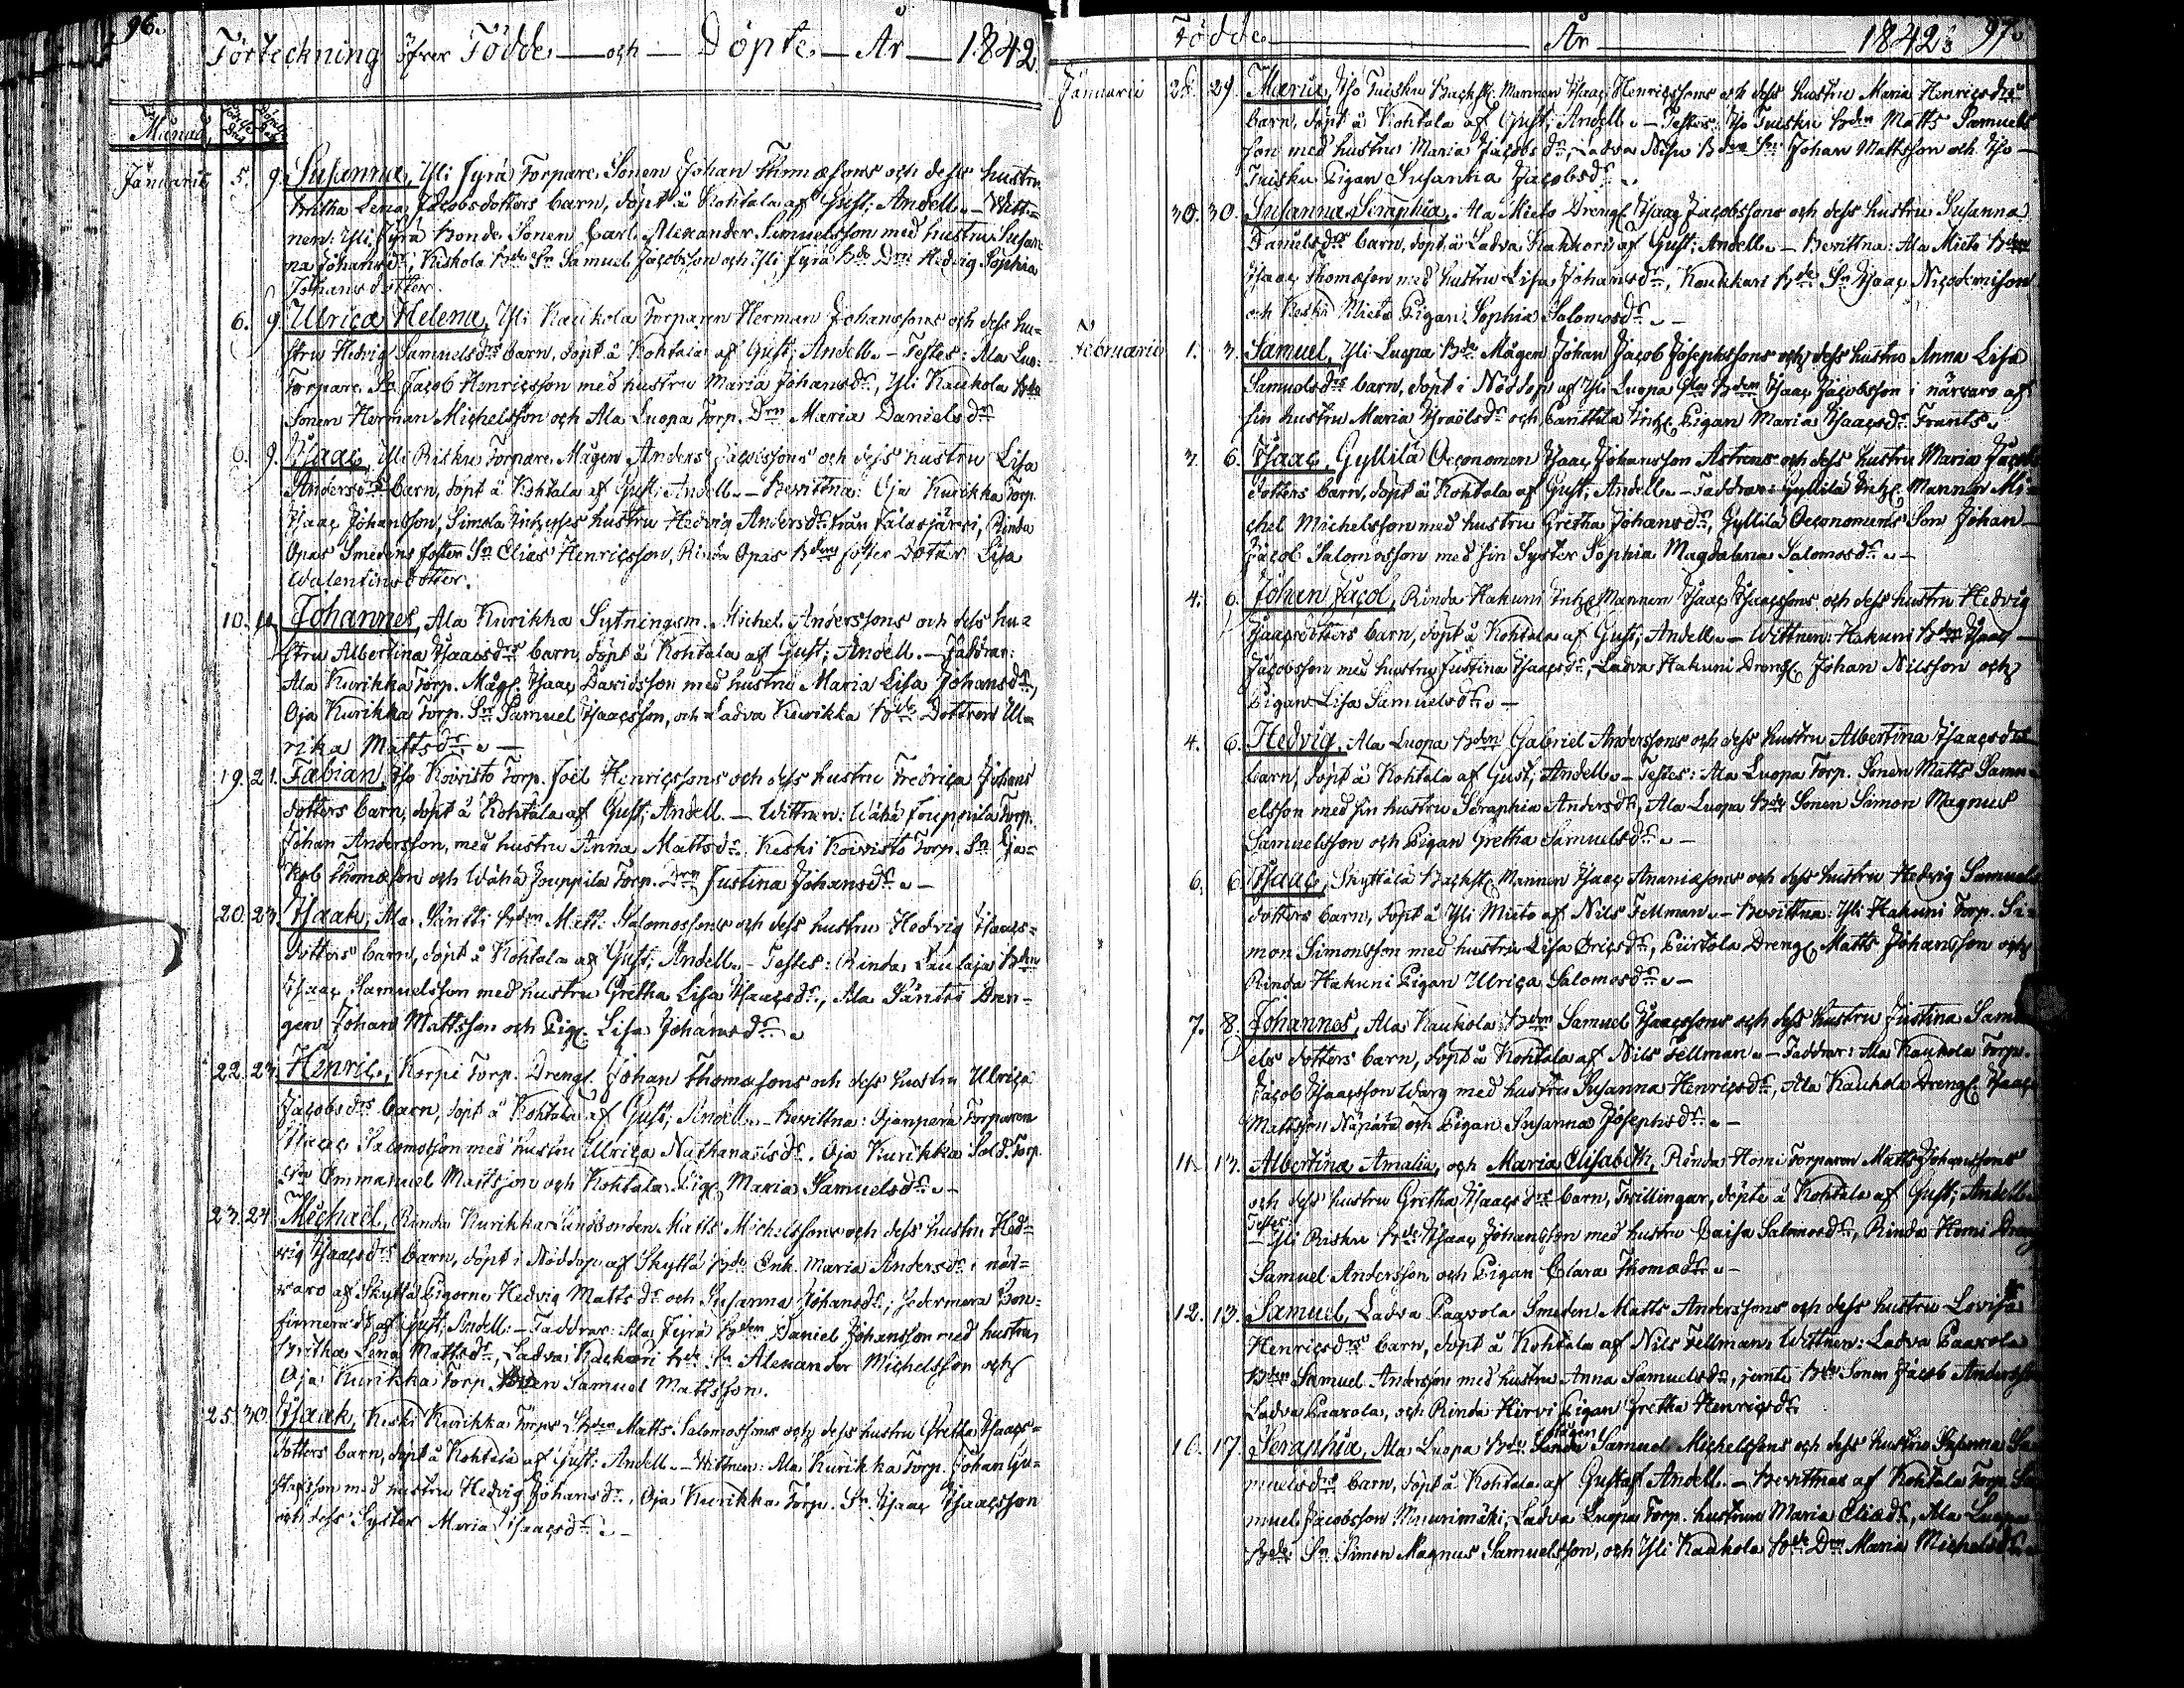 96.
Förteckning öfver Födde och Döpte År 1842.
Månad, Födelse Dag Döpelse Dag
Januarii 5. 9. Susanna, Yli Jyrä Torpare Sonen Johan Thomæsons och dess hustru
Britha Lena Jacobsdotters barn, döpt å Kohtala af Gust; Andell. - Witt=
nen: Yli Jyrä Bonde Sonen Carl Alexander Simuelsson med hustru Susan
na Johansdr, Kiskola Bde Sn Samuel Jacobsson och Yli Jyrä Bde Drn Hedvig Sophia
Johansdotter.
6. 9. Ulrica Helena, Yli Kaukola Torparen Herman Johanssons och dess hu=
stru Hedvig Samuelsdrs barn, döpt å Kohtala af Gust; Andell. - Testes: Ala Luo:
Torpare Sn Jacob Henricsson med hustru Maria Johansdr, Yli Kaukola Bde
Sonen Herman Michelsson och Ala Luopa Torp. Drn Maria Danielsdr
6. 9. Isaac, Yli Risku Torpare Mågen Anders Jacobssons och dess hustru Lisa
Andersdrs barn, döpt å Kohtala af Gust; Andell. - Bevittna: Oja Kurikka Torp.
Isaac Johansson, Simola Inhyses hustru Hedvig Andersdr från Jalasjärvi, Rinda
Opas Smedens foster Sn Elias Henricsson, Rinda Opas Bdens foster dotter Lisa
Walentinsdotter.
10. 11. Johannes, Ala Kurikka Sytningsm. Michel Anderssons och dess hu=
stru Albertina Isaacsdrs barn, döpt å Kohtala af Gust; Andell. - Faddrar:
Ala Kurikka Torp. Måg. Isaac Davidsson med hustru Maria Lisa Johansdr,
Oja Kurikka Torp. Sn Samuel Isaacsson, och Ladva Kurikka Bde Dottren Ul=
rika Mattsdr. -
19. 21. Fabian, Iso Koivisto Torp. Joel Henricssons och dess hustru Fredrica Johans
dotters barn, döpt å Kohtala af Gust; Andell. - Wittnen: Wähä Jouppila Torp.
Johan Andersson, med hustru Anna Mattsdr. Keski Koivisto Torp. Sn Ja=
kob Thomæson och Wähä Jouppila Torp. Drn Justina Johansdr. -
20. 23. Isaak, Ala Säntti Bden Matt. Salomossons och dess hustru Hedvig Isaacs=
dotters barn, döpt å Kohtala af Gust; Andell. - Testes: Rinda Laulaja Bden
Isaac Samuelsson med hustru Gretha Lisa Isaacsdr, Ala Säntti Dren=
gen Johan Mattsson och Pig. Lisa Johansdr.
22. 23. Henric, Korpi Torp. Dreng. Johan Thomæsons och dess hustru Ulrica
Jacobsdrs barn, döpt å Kohtala af Gust; Andell. - Bevittna: Torparen
Isaac Salomosson med hustru Ulrica Nathanaelsdr. Oja Kurikka Sold. Torp.
Sn Emmanuel Mattsson och Kohtala Pig. Maria Samuelsdr. -
23. 24. Michael, Rinda Kurikka Landbonden Matts Michelssons och dess hustru Hed=
vig Isaacsdrs barn, döpt i Nöddop af Skyttä Bde Enk. Maria Andersdr i när=
varo af Skyttä Pigorne Hedvig Mattsdr och Susanna Johansdr, sedermera Con=
firmeradt af Gust; Andell. - Faddrar: Ala Jyrä Bden Daniel Johansson med hustru
Britha Lena Mattsdr, Ladva Kackori Bde Sn Alexander Michelsson och
Oja Kurikka Torp. Samuel Mattsson.
25. 30. Isaak, Keski Kurikka Torps Bden Matts Salomossons och dess hustru Gretha Isaacs=
dotters barn, döpt å Kohtala af Gust: Andell. - Wittnen: Ala Kurikka Torp. Johan Gu=
stafsson med hustru Hedvig Johansdr, Oja Kurikka Torp. Sn Isaac Isaacsson
och dess Syster Maria Isaacsdr. -
Födde År 1842. 97.
Januarii 28. 29. Maria, Iso Tuisku Backst. Mannen Isaac Henricssons och dess hustru Maria Henricsdrs
barn, döpt å Kohtala af Gust; Andell. - Testes: Iso Tuisku Bden Matts Samuels
son med hustru Maria Jacobsdr, Ladva Bdens Sn Johan Mattsson och Iso
Tuisku Pigan Susanna Jacobsdr.
30. 30. Susanna Seraphia, Ala Mieto Dreng. Isaac Jacobssons och dess hustru Susanna
Danielsdrs barn, döpt å Ladva Kackori af Gust; Andell. - Bevittna: Ala Mieto Bden
Isaac Thomæson med hustru Lisa Johansdr, Koukkari Bde Sn Isaac Nicodemison
och Keski Mieto Pigan Sophia Salomosdr. -
Februarii 1. 3. Samuel, Yli Luopa Bde Mågen Johan Jacob Josephssons och dess hustru Anna Lisa
Samuelsdrs barn, döpt i Nöddop af Yli Luopa Bden Isaac Jacobsson i närvaro af
sin hustru Maria Israelsdr och Panttila Inh. Pigan Maria Isaacsdr Frants.
3. 6. Isaac, Gyllilä Oeconomen Isaac Johansson Astrens och dess hustru Maria Jacobs
dotters barn, döpt å Kohtala af Gust; Andell. - Faddrar: Gyllilä Inh. Mannen Mi=
chel Michelsson med hustru Gretha Johansdr, Gyllilä Oeconomens Son Johan
Jacob Salomosson med sin Syster Sophia Magdalena Salomosdr. -
4. 6. Johan Jacob, Rinda Hakuni Inh. Mannen Isaac Isaacssons och dess hustru Hedvig
Isaacsdotters barn, döpt å Kohtala af Gust; Andell. - Wittnen: Hakuni Bden Isaac
Jacobsson med hustru Justina Isaacsdr, Ladva Hakuni Dreng. Johan Nilsson och
Pigan Lisa Samuelsdr. -
4. 6. Hedvig, Ala Luopa Bden Gabriel Anderssons och dess hustru Albertina Isaacsdrs
barn, döpt å Kohtala af Gust; Andell. - Testes: Ala Luopa Torp. Sonen Matts Samu=
elsson med sin hustru Seraphia Andersdr, Ala Luopa Bde Sonen Simon Magnus
Samuelsson och Pigan Gretha Samuelsdr. -
6. 6. Isaac, Skyttälä Backst. Mannen Isaac Ananiæsons och dess hustru Hedvig Samuels
dotters barn, döpt å Yli Mieto af Nils Fellman. - Bevittna: Yli Hakuni Torp. Si=
mon Simonsson med hustru Lisa Ericsdr, Piirtola Dreng. Matts Johansson och
Rinda Hakuni Pigan Ulrica Salomosdr. -
7. 8. Johannes, Ala Kaukola Bden Samuel Isaacssons och dess hustru Justina Samu
els dotters barn, döpt å Kohtala af Nils Fellman. - Faddrar: Ala Kaukola Torp.
Jacob Isaacsson Warg med hustru Susanna Henricsdr, Ala Kaukola Dreng. Isaac
Mattsson Näpärä och Pigan Susanna Josephsdr. -
11. 13. Albertina Amalia, och Maria Elisabeth, Rinda Homi Torparen Matts Johanssons
och dess hustru Gretha Isaacsdrs barn, Twillingar, döpte å Kohtala af Gust; Andell.
Testes:
- Yli Risku Bde Isaac Johansson med hustru Caisa Salomosdr, Rinda Homi Dreng
Samuel Andersson och Pigan Clara Thomædr. -
12. 13. Samuel, Ladva Paavola Smeden Matts Anderssons och dess hustru Lovisa
Henricsdrs barn, döpt å Kohtala af Nils Fellman, Wittnen: Ladva Paavola
Bden Samuel Andersson med hustru Anna Samuelsdr, jemte Bde Sonen Jacob Andersson
Ladva Paavola, och Rinda Hirvi Pigan Gretha Henricsdr.
Mågen
16. 17. Seraphia, Ala Luopa Bde Samuel Michelssons och dess hustru Susanna Sa
muelsdrs barn, döpt å Kohtala af Gustaf Andell. - Bevittnas af Kohtala Torp. Sa
muel Jacobsson Muurimäki, Ladva Luopa Torp. hustrun Maria Eliædr, Ala Luopa
Bde Sn Simon Magnus Samuelsson, och Yli Kaukola Bde Drn Maria Michelsdr.